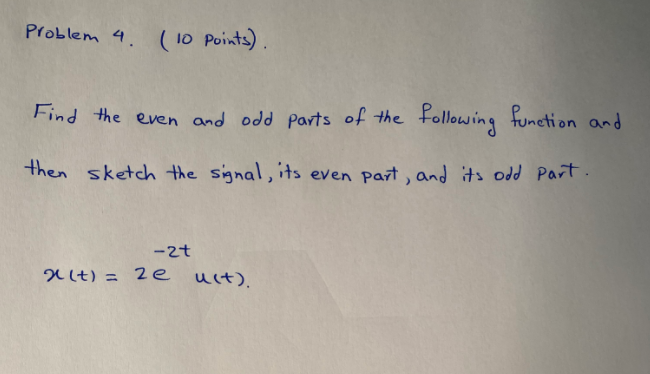 Problem 4. (10 Points).
Find the even and odd parts of the following function and
then sketch the signal, its even part, and its odd part.
x(t) = 2e^{-2t} u(t).